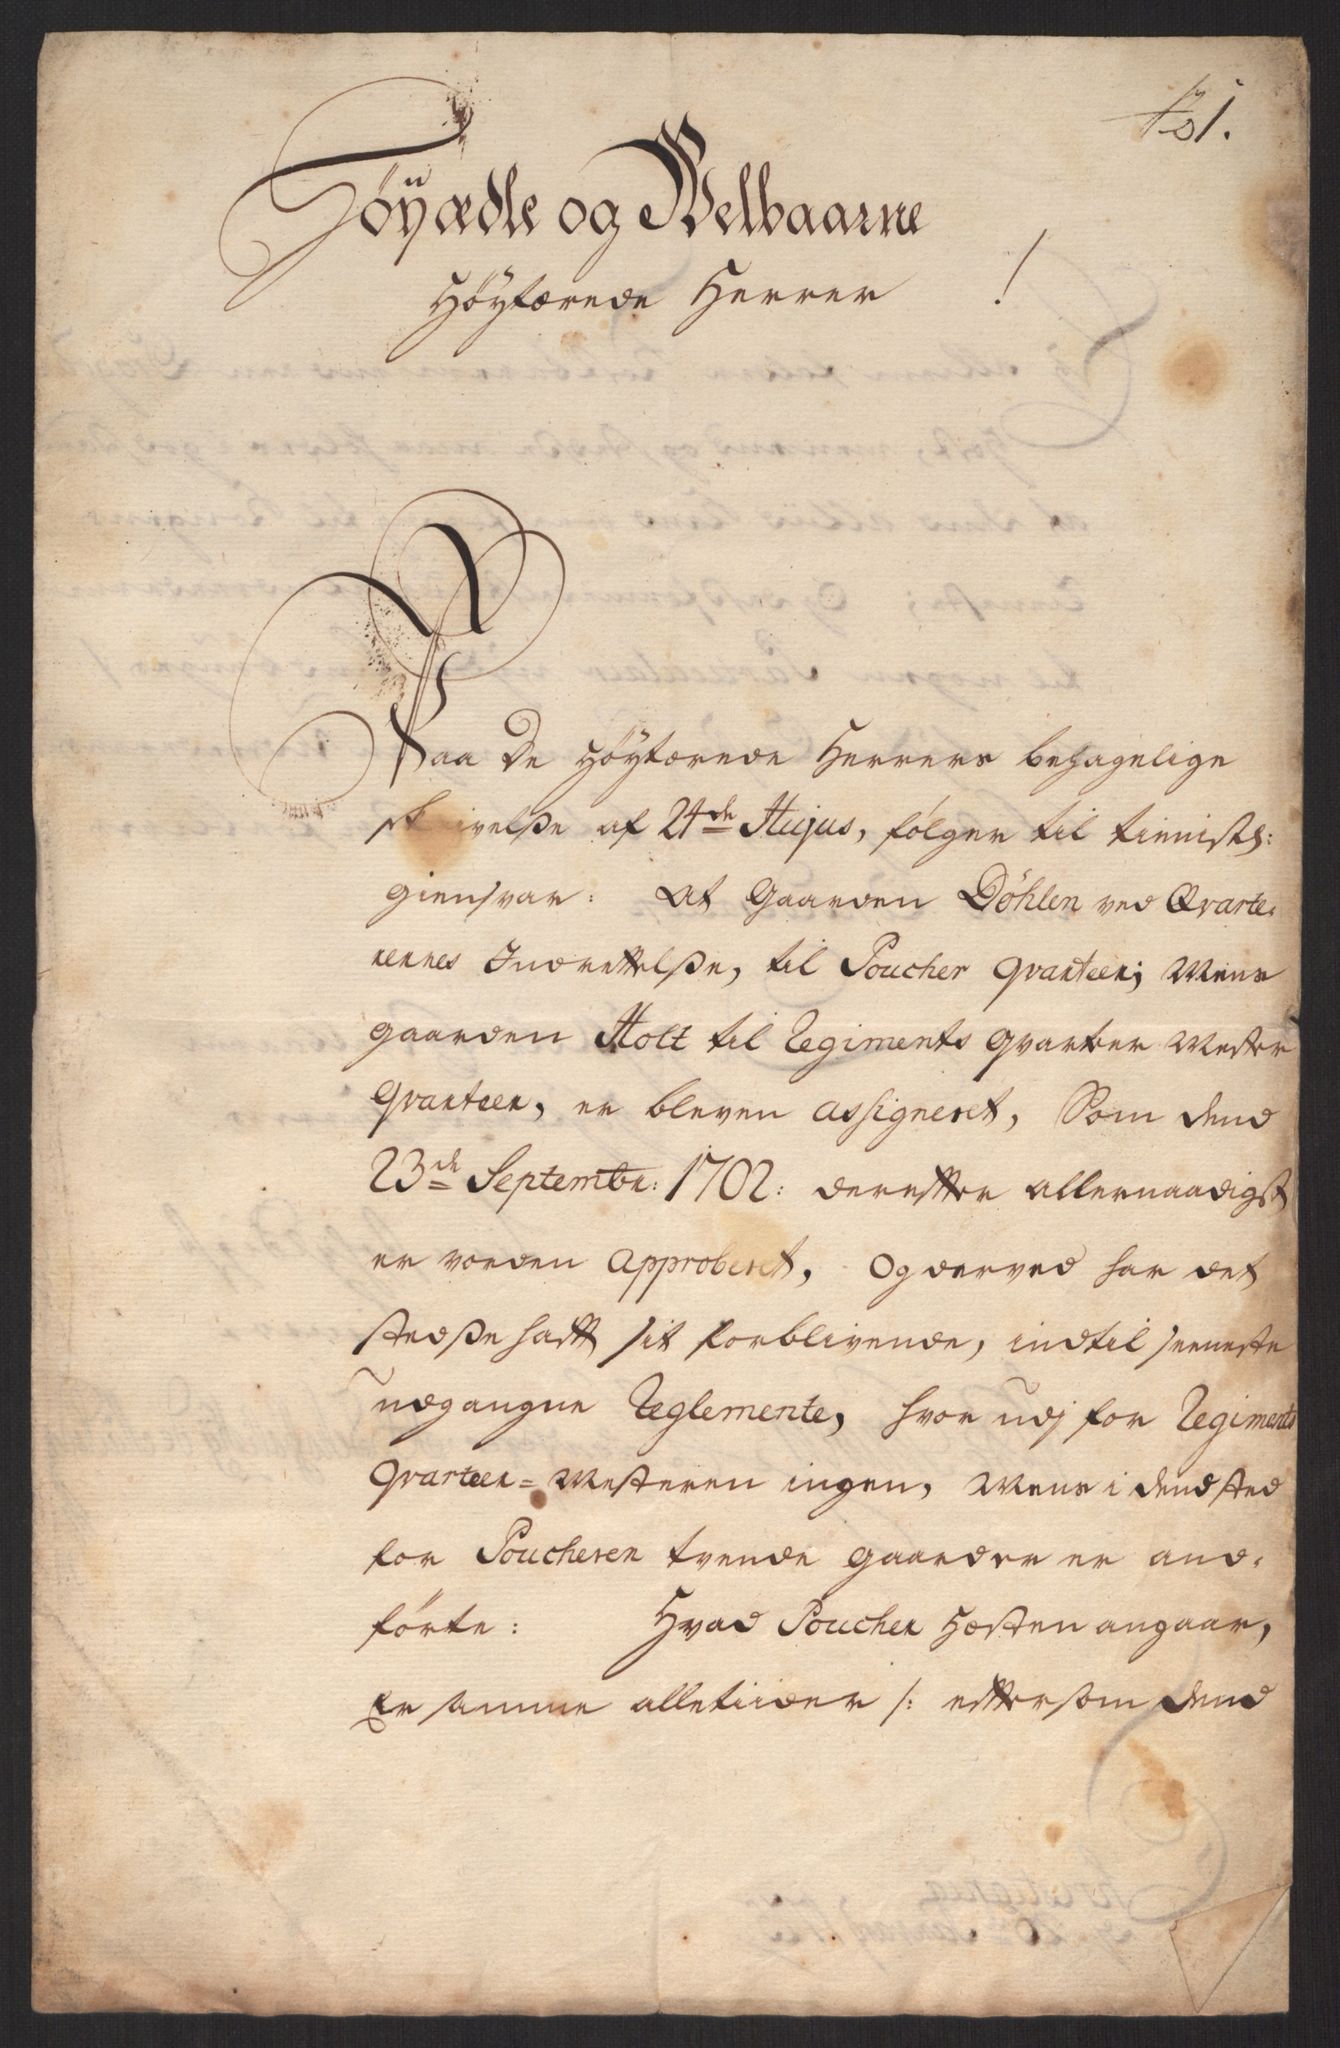 No 1.
Höÿædle og Welbaarne
Höÿtærede Herrer !
Paa De Höÿtærede Herrers behagelige
skrivelße af 24de Hujus, følger til tienistl:
giensvar: At Gaarden Döhlen ved Qvarte-
rernes Indrettelße, til Poucher Qvarteer; Mens
gaarden Holt til Regiments Qvarteer Mester
Qvarteer, er bleven assigneret, Som dend
23de Septembr: 1702: derefter allernaadigst
er vorden approberet, Og derved har det
stedße hafft sit forblivende, indtil seeneste
udgangne Reglemente, hvor udj for Regiments
Qvarteer=Mesteren ingen, Mens i dend sted
for Poucheren tvende gaarder er and-
förte: Hvad Poucher Hesten angaar,
Er samme alletiider /: eftersom dend